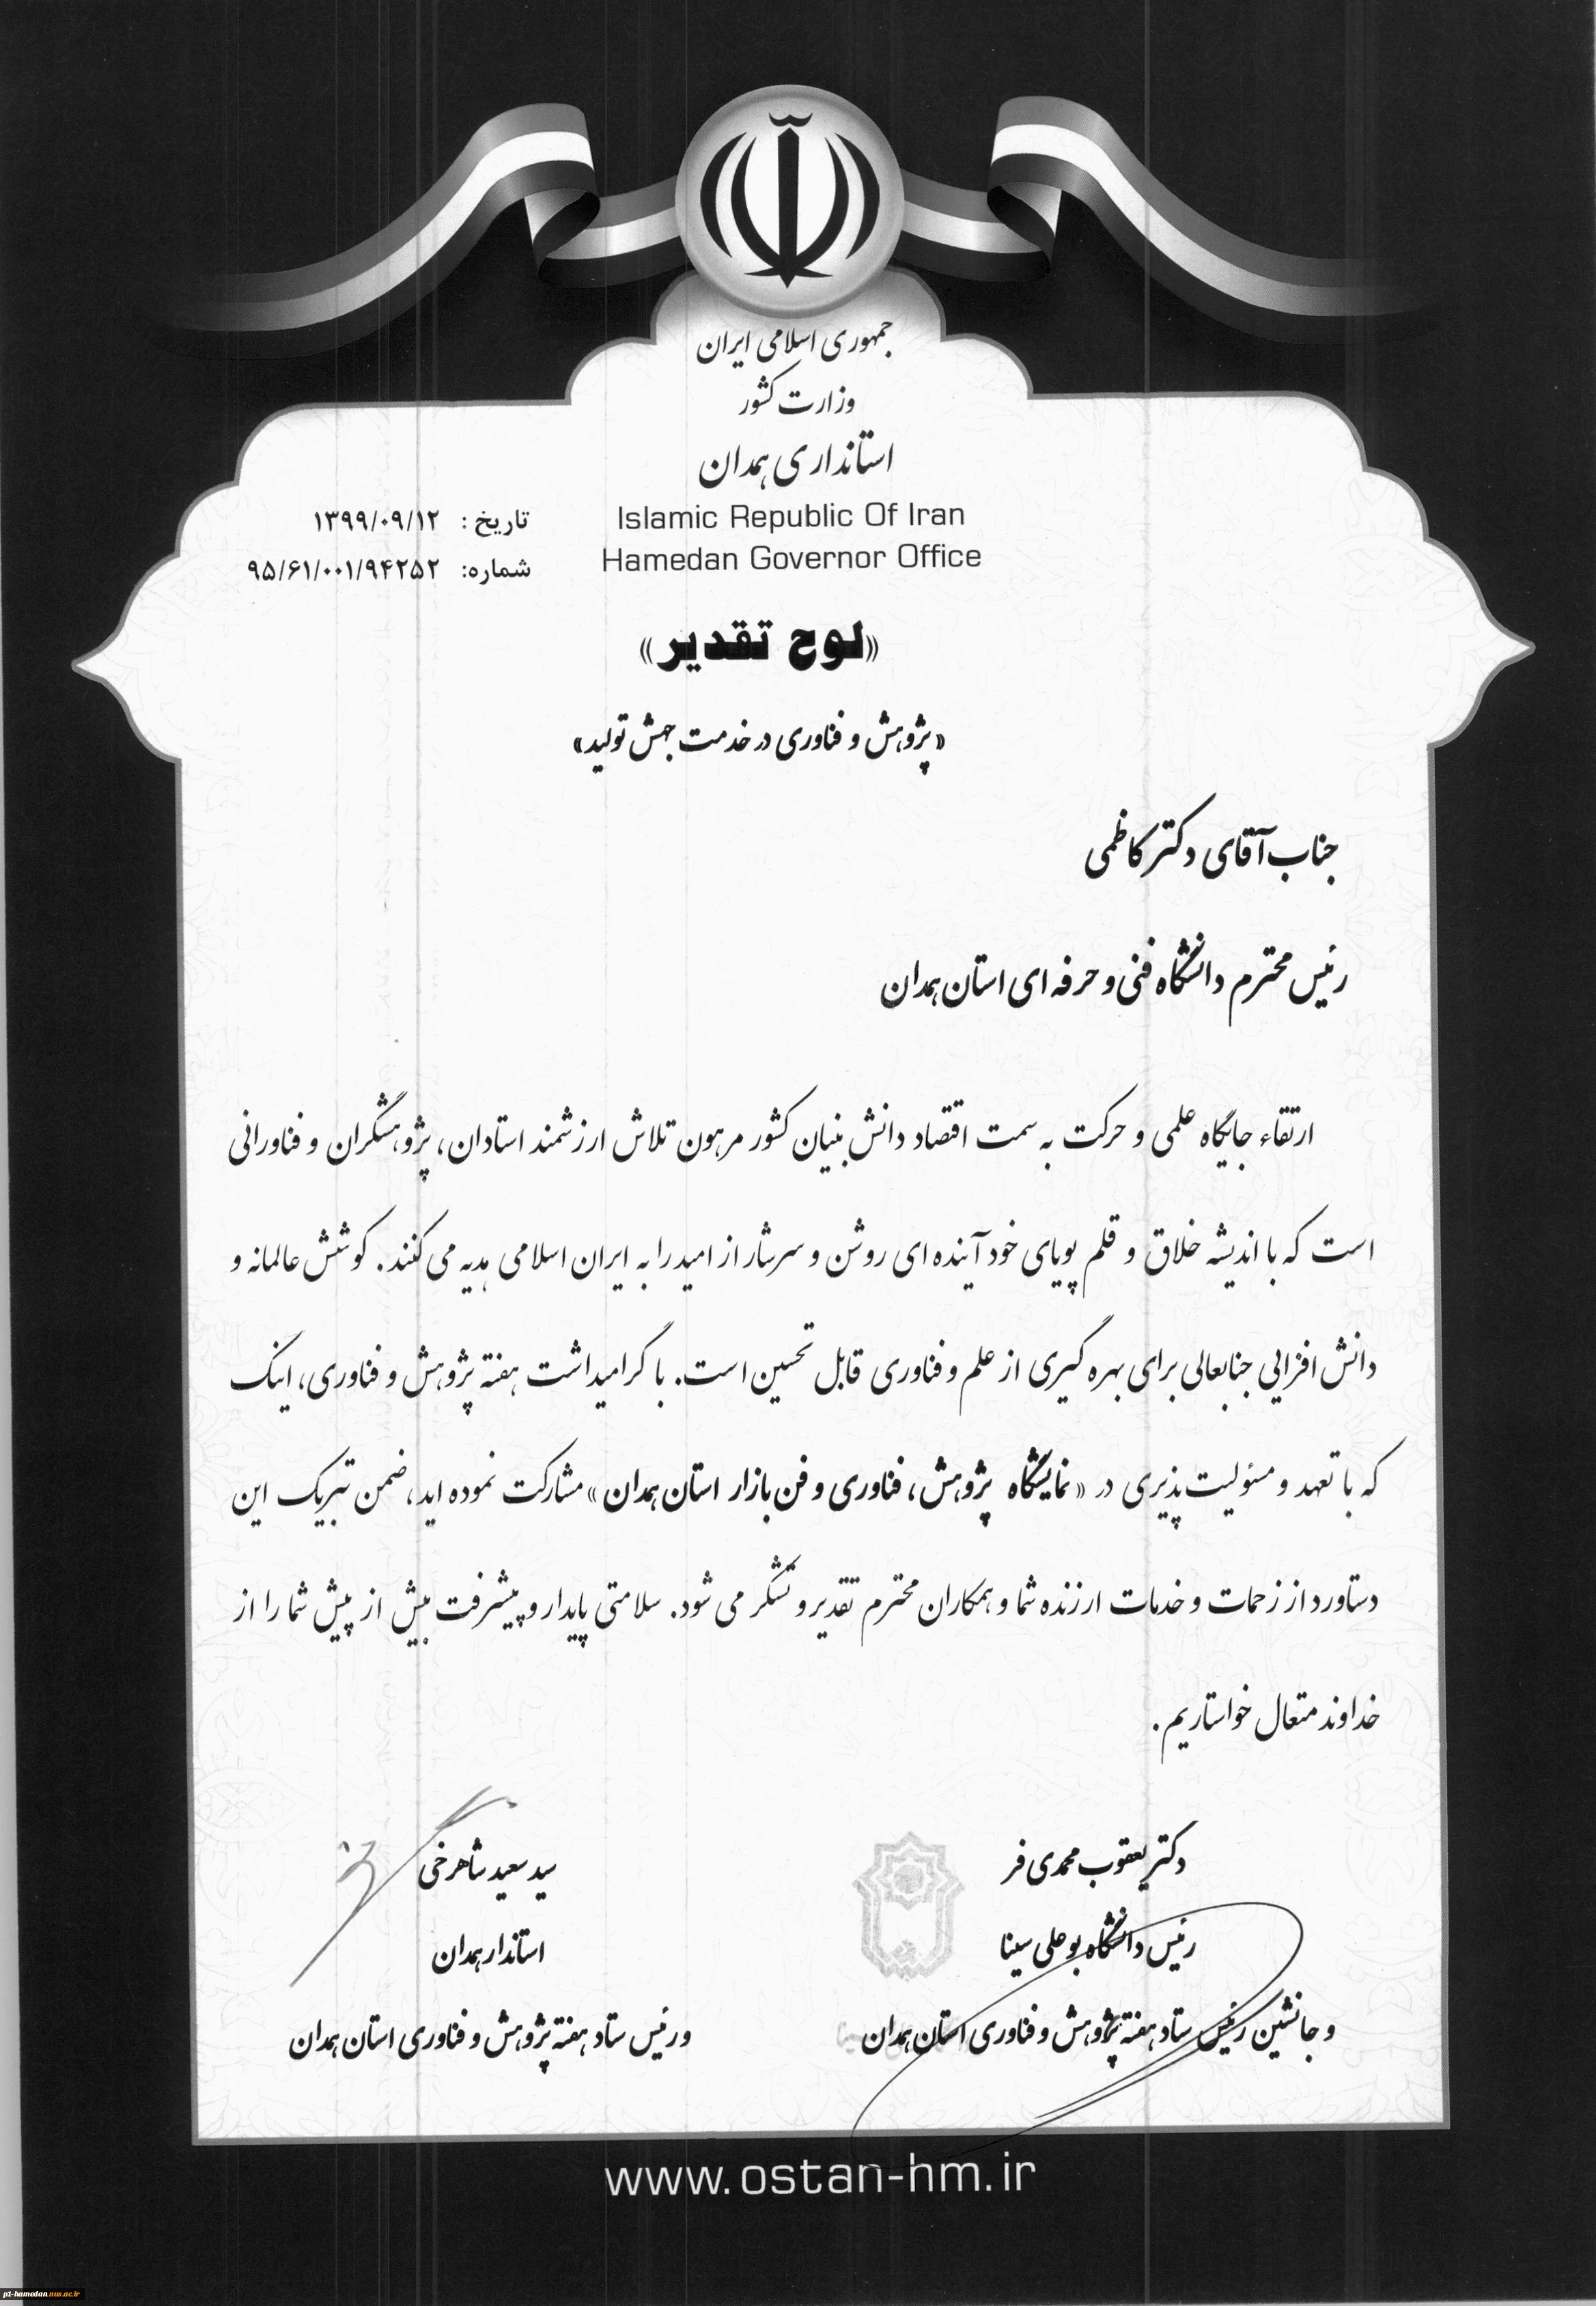 جمهوری اسلامی ایران
وزارت کشور
استانداری همدان
Islamic Republic Of Iran
Hamedan Governor Office
تاریخ : ۱۳۹۹/۰۹/۱۲
شماره: ۹۵/۶۱/۰۰۱/۹۴۲۵۲
«لوح تقدیر»
«پژوهش و فناوری در خدمت جهش تولید»
جناب آقای دکتر کاظمی
رئیس محترم دانشگاه فنی و حرفه ای استان همدان
ارتقاء جایگاه علمی و حرکت به سمت اقتصاد دانش بنیان کشور مرهون تلاش ارزشمند استادان، پژوهشگران و فناورانی
است که با اندیشه خلاق و قلم پویای خود آینده ای روشن و سرشار از امید را به ایران اسلامی هدیه می کنند. کوشش عالمانه و
دانش افزایی جنابعالی برای بهره گیری از علم و فناوری قابل تحسین است. با گرامیداشت هفته پژوهش و فناوری، اینک
که با تعهد و مسئولیت پذیری در «نمایشگاه پژوهش، فناوری و فن بازار استان همدان» مشارکت نموده اید، ضمن تبریک این
دستاورد از زحمات و خدمات ارزنده شما و همکاران محترم تقدیر و تشکر می شود. سلامتی پایدار و پیشرفت بیش از پیش شما را از
خداوند متعال خواستاریم.
دکتر یعقوب محمدی فر
رئیس دانشگاه بوعلی سینا
و جانشین رئیس ستاد هفته پژوهش و فناوری استان همدان
سید سعید شاهرخی
استاندار همدان
و رئیس ستاد هفته پژوهش و فناوری استان همدان
www.ostan-hm.ir
p1-hamedan.nus.ac.ir